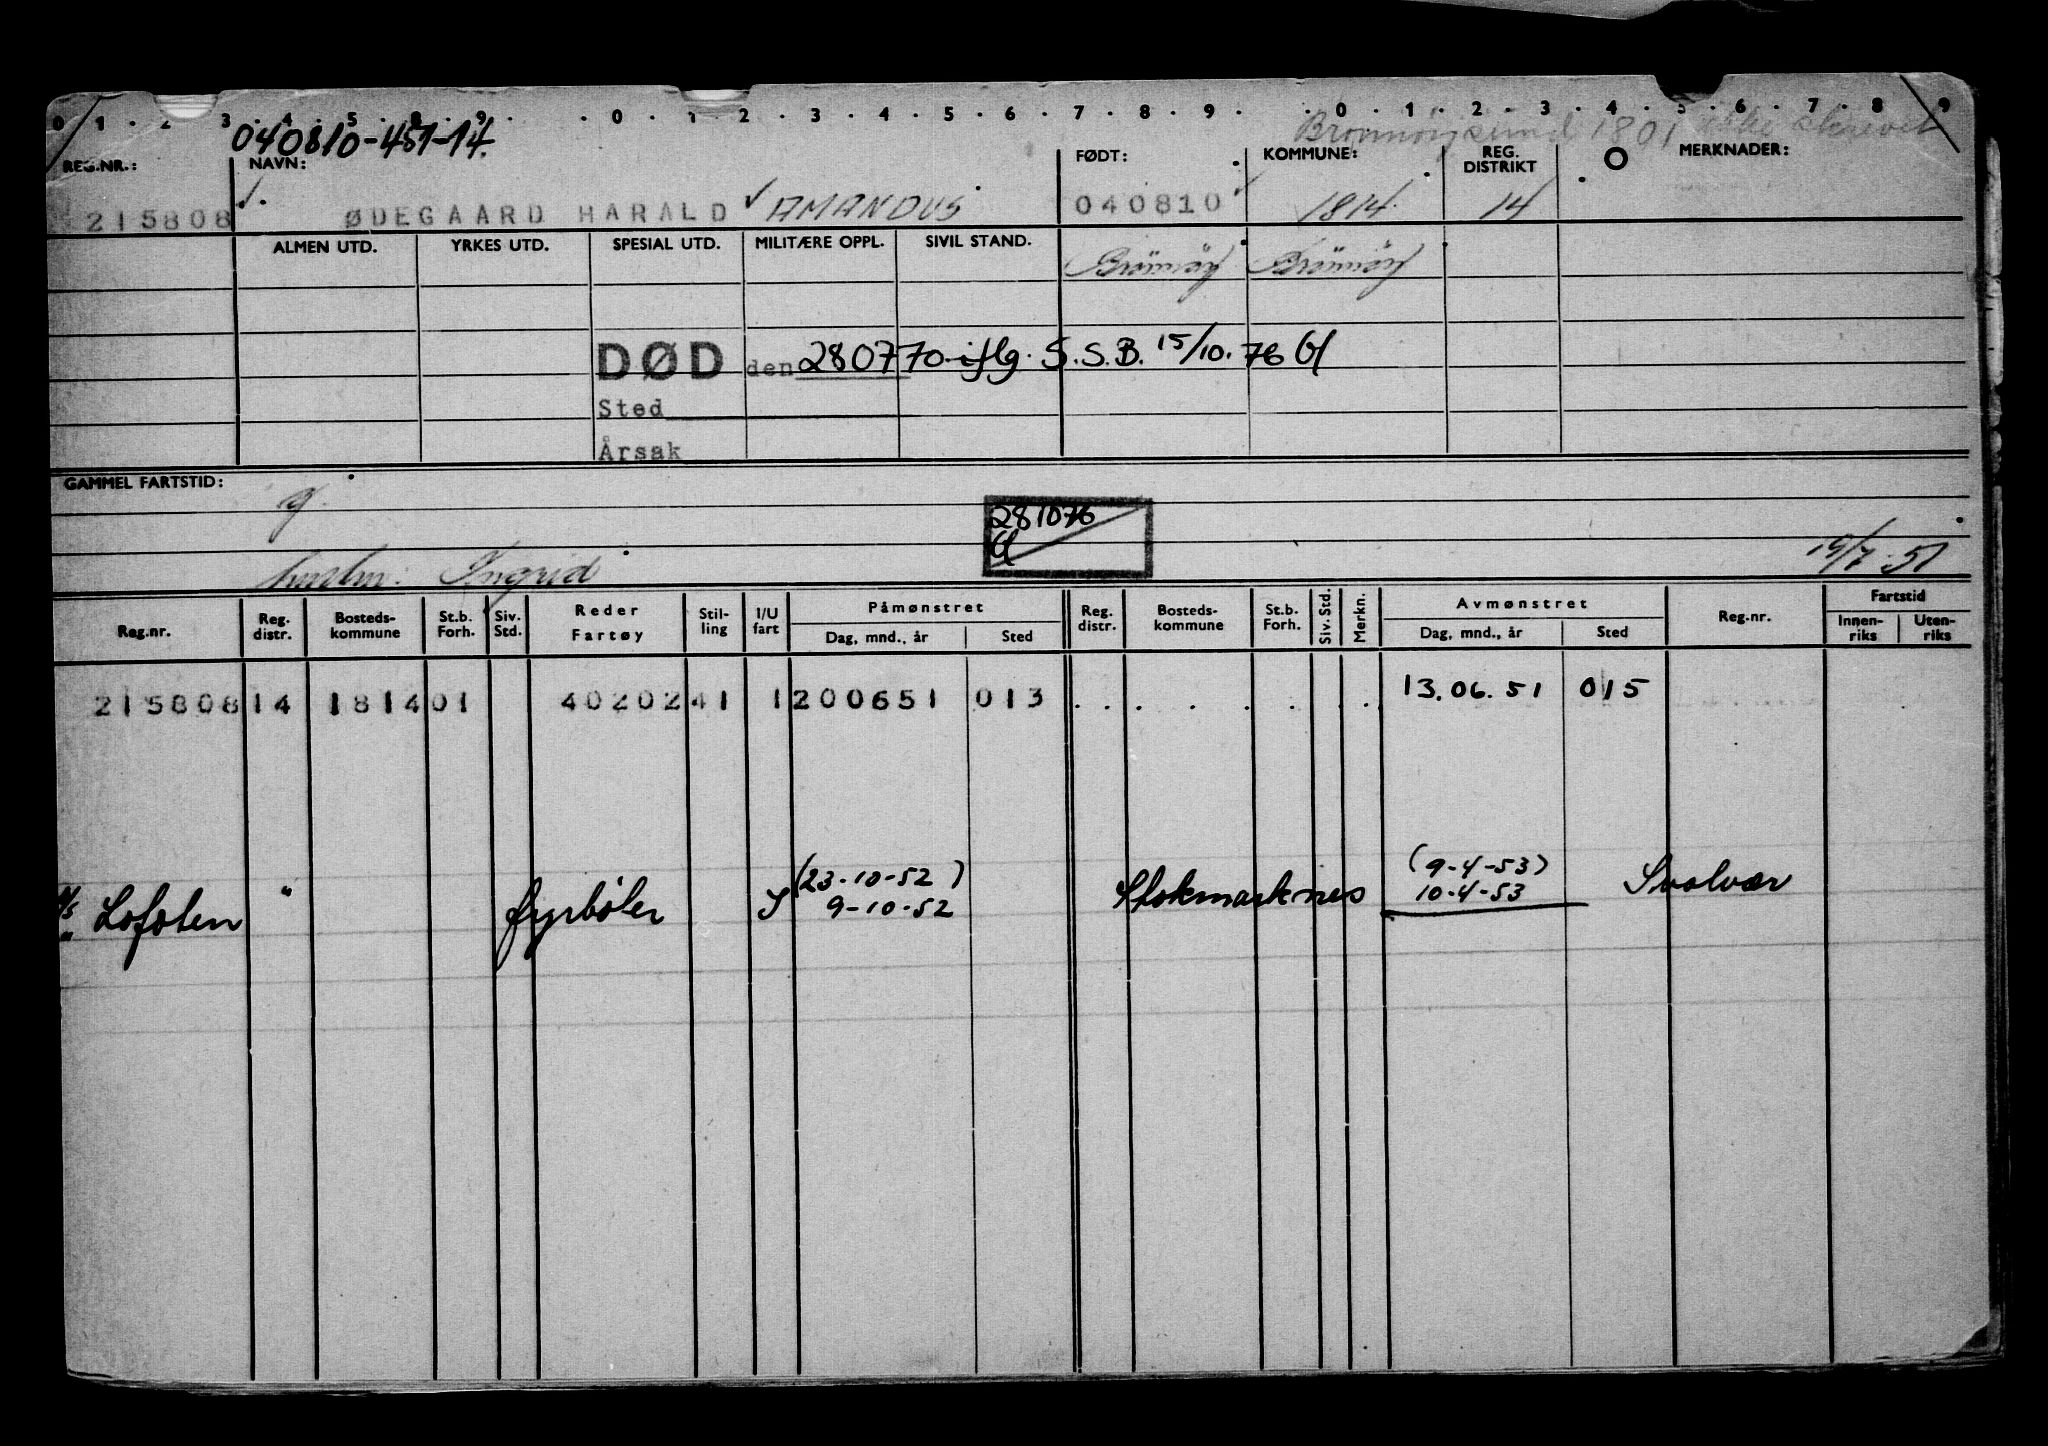 0 1 . 2 3 . 4 . 5 . 8 . 9 . . 0 . 1 . 2 . 3 . 4 . 5 . 6 . 7 . 8 . 9 . . 0 . 1 . 2 . 3 . 4 . 5 . 6 . 7 . 8 9
040810-451-14. Brønnøysund 1801 ikke skrevet
REG.NR.: NAVN: FØDT: KOMMUNE: REG. DISTRIKT O MERKNADER:
215808 ØDEGAARD HARALD AMANDUS 040810 1814. 14
ALMEN UTD. YRKES UTD. SPESIAL UTD. MILITÆRE OPPL. SIVIL STAND. Brönnöy Brönnöy
DØD den 280770 iflg. S.S.B. 15/10.76
Sted
Årsak
GAMMEL FARTSTID: g.
281076
Ingrid 19/7.51
Reg.nr. Reg. distr. Bosteds-kommune St.b. Forh. Siv. Std. Reder Fartøy Stil-ling I/U fart Påmønstret Dag, mnd., år Sted Reg. distr. Bosteds-kommune St.b. Forh. Siv. Std. Merkn. Avmønstret Dag, mnd., år Sted Reg.nr. Fartstid Innen-riks Uten-riks
215808 14 1814 01 40202 41 1 200651 013 13.06.51 015
(23-10-52) (9-4-53)
Lofoten " fyrböter I 9-10-52 Stokmarknes 10-4-53 Svolvær